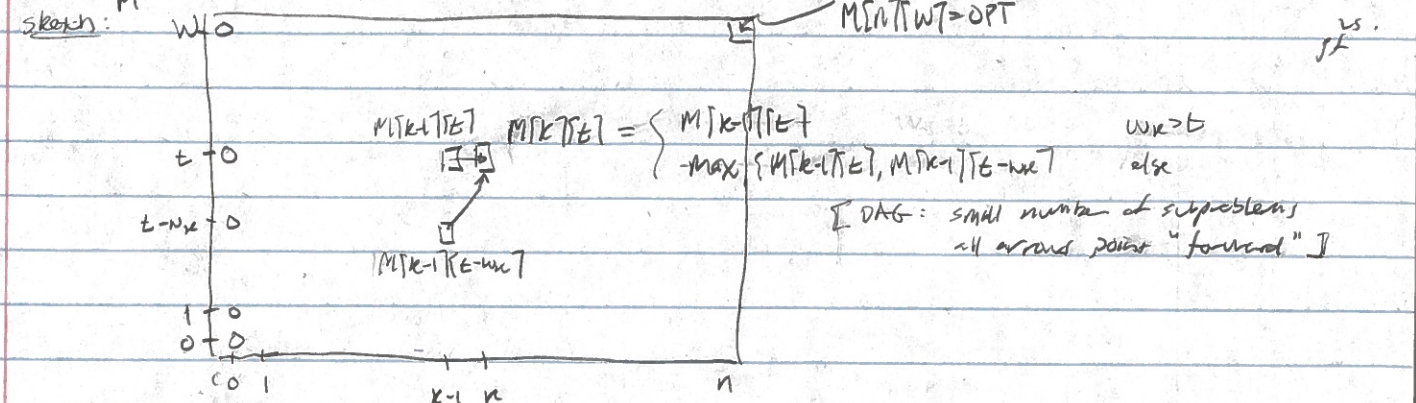 sketch:
W 0
M[n][W] = OPT
M[k-1][t]
M[k][t] = { M[k-1][t] wk>t
t 0
max {M[k-1][t], M[k-1][t-wk] else
t-wk 0
[DAG: small number of subproblems
all arrows point "forward"]
M[k-1][t-wk]
1 0
0 0
0 1 k-1 k n